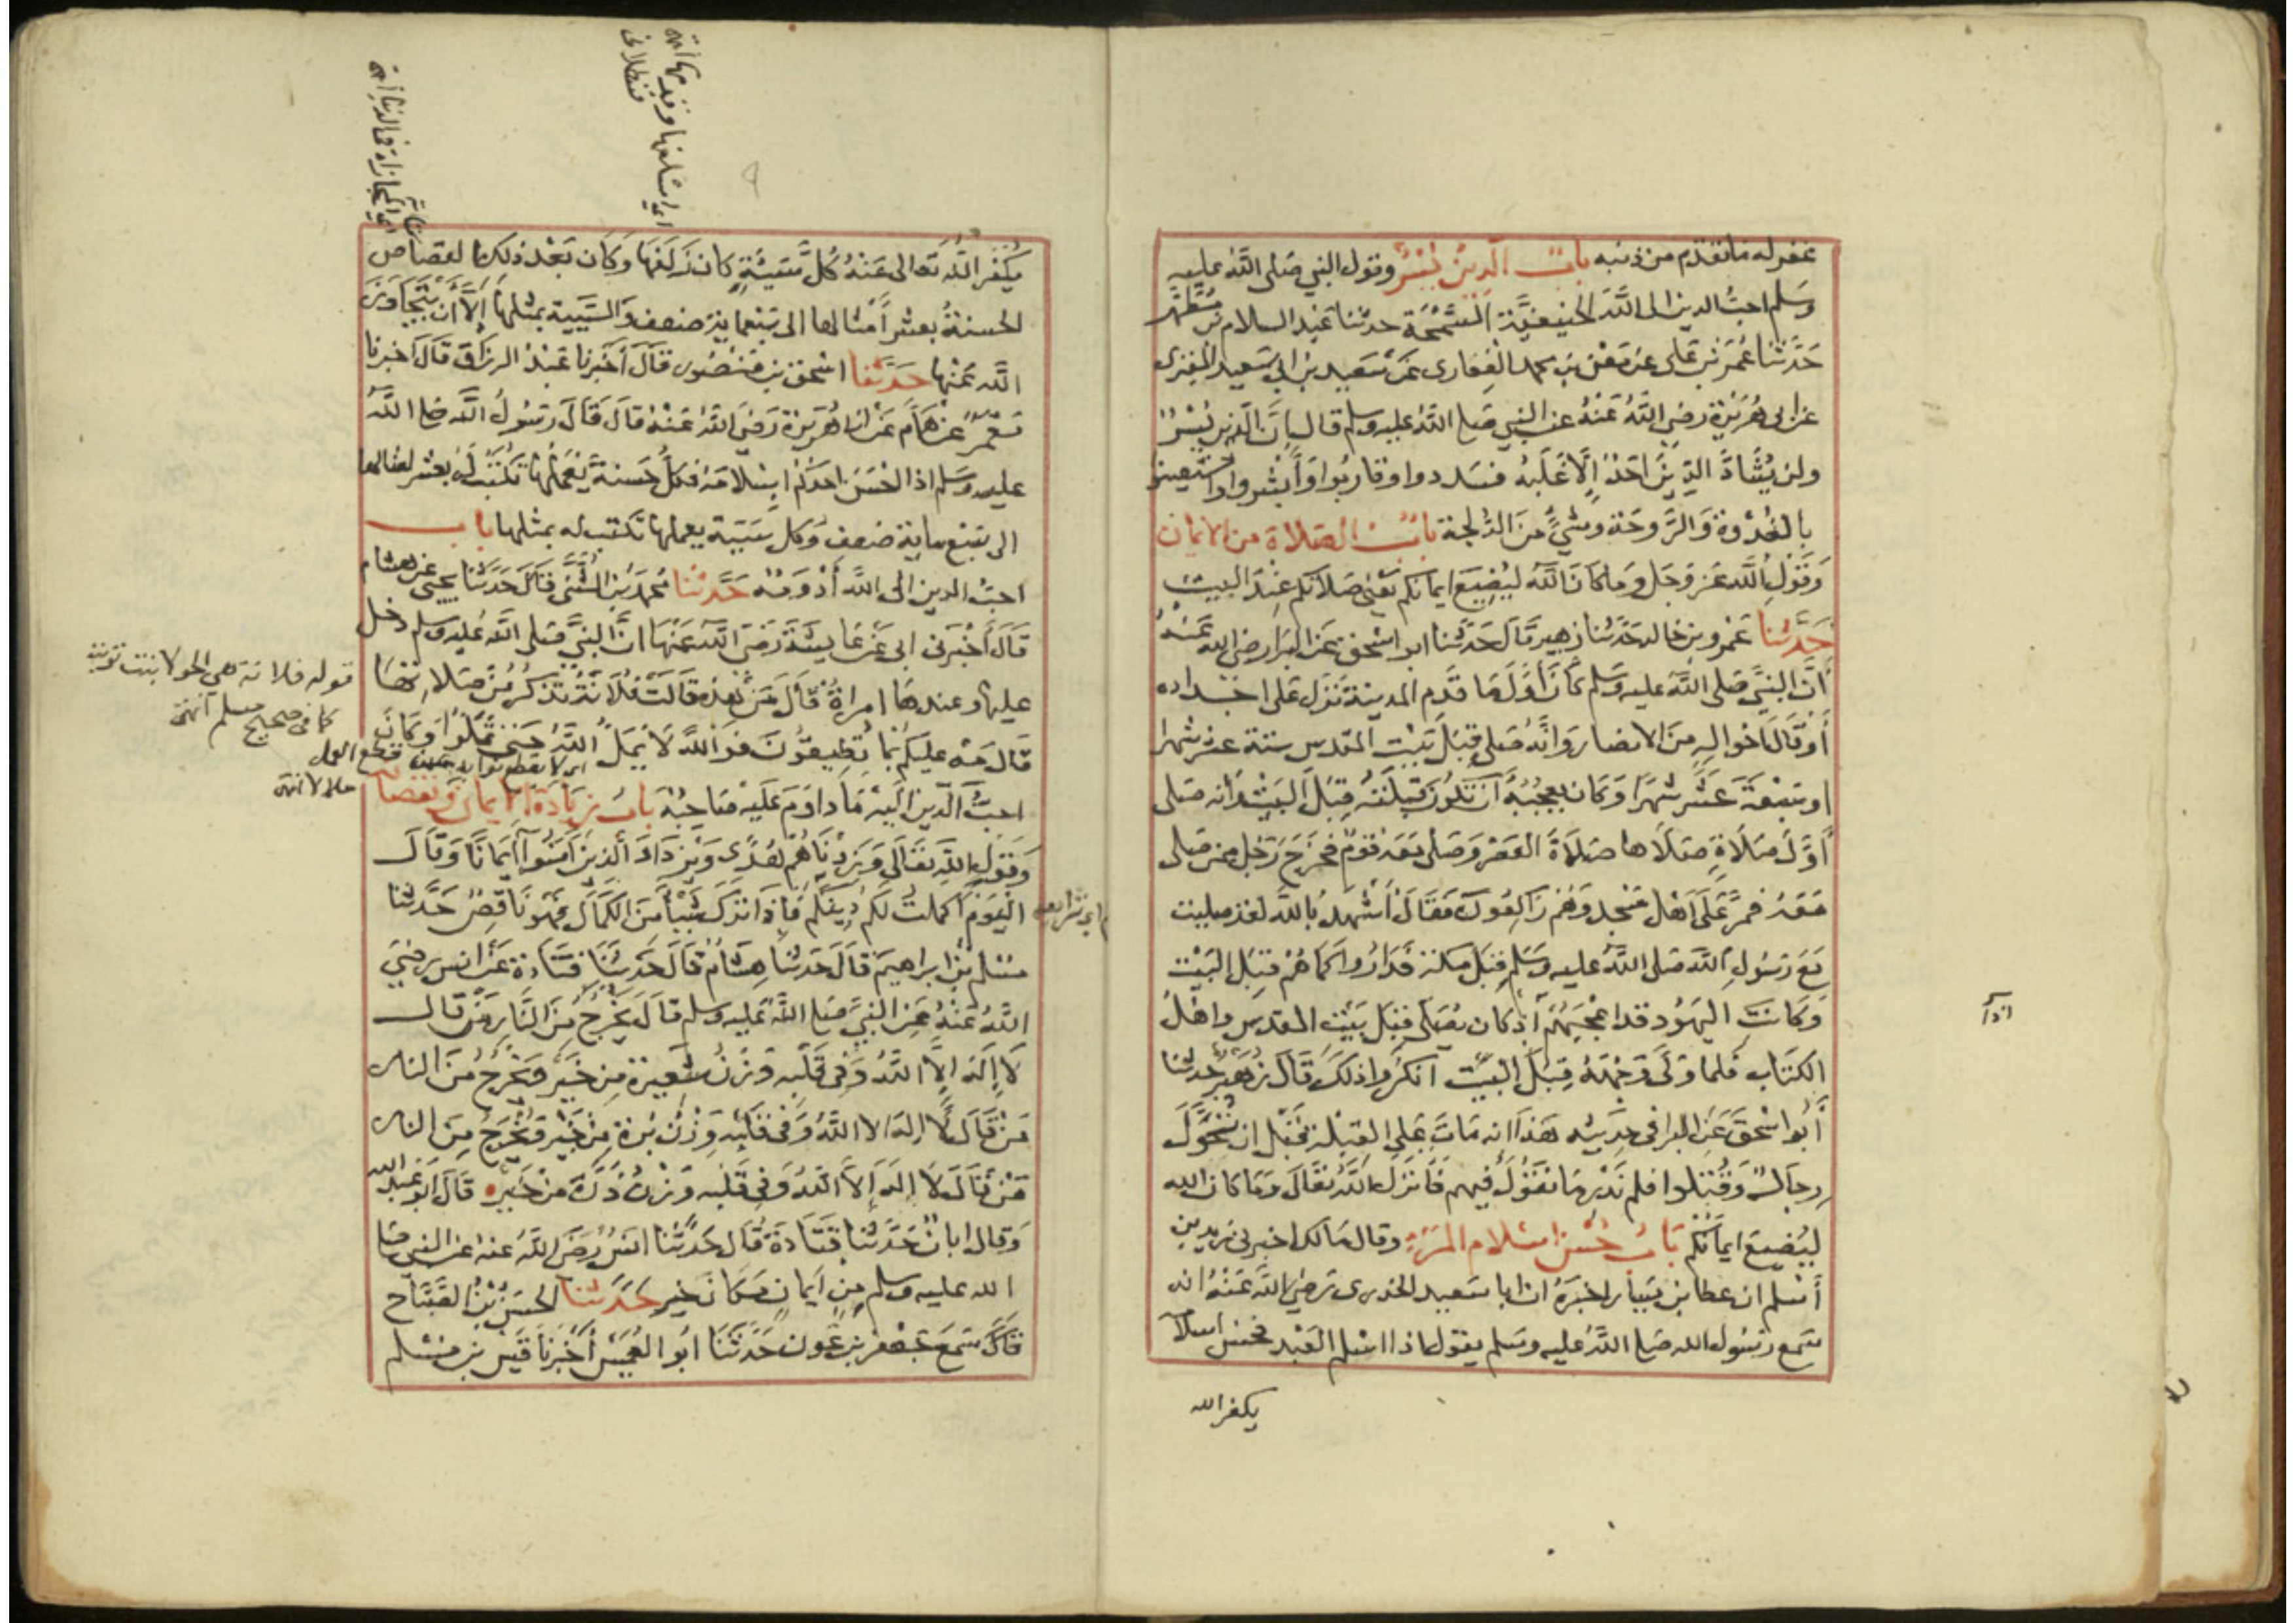 غفر له ما تقدم من ذنبه باب الدين يسر وقول النبي صلى الله عليه
وسلم احب الدين الى الله الحنيفية السمحة حدثنا عبد السلام بن مطهر
حدثنا عمر بن على عن معن بن محمد الغفارى عن سعيد بن ابى سعيد المقبرى
عن ابى هريرة رضي الله عنه عن النبي صلى الله عليه وسلم قال ان الدين يسر
ولن يشاد الدين احد الا غلبه فسددوا وقاربوا وابشروا واستعينوا
بالغدوة والروحة وشيء من الدلجة باب الصلاة من الايمان
وقول الله عز وجل وما كان الله ليضيع ايمانكم يعنى صلاتكم عند البيت
حدثنا عمرو بن خالد حدثنا زهير قال حدثنا ابو اسحق عن البرا رضى الله عنه
أن النبي صلى الله عليه وسلم كان أول ما قدم المدينة نزل على اجداده
أو قال اخواله من الانصار وانه صلى قبل بيت المقدس ستة عشر شهرا
او سبعة عشر شهرا وكان يعجبه أن تكون قبلته قبل البيت وانه صلى
أول صلاة صلاها صلاة العصر وصلى معه قوم فخرج رجل ممن صلى
معه فمر على اهل مسجد وهم راكعون فقال أشهد بالله لقد صليت
مع رسول الله صلى الله عليه وسلم قبل مكة فداروا كما هم قبل البيت
وكانت اليهود قد اعجبهم اذ كان يصلى قبل بيت المقدس واهل
الكتاب فلما ولى وجهه قبل البيت انكروا ذلك قال زهير حدثنا
أبو اسحق عن البرا فى حديثه هذا انه مات على القبلة قبل ان تحول
رجال وقتلوا فلم ندر ما نقول فيهم فانزل الله تعالى وما كان الله
ليضيع ايمانكم باب حسن اسلام المرء وقال مالك اخبرنى زيد بن
أسلم ان عطا بن يسار اخبره ان ابا سعيد الخدرى رضى الله عنه انه
سمع رسول الله صلى الله عليه وسلم يقول اذا اسلم العبد فحسن اسلامه
يكفر الله
يكفر الله تعالى عنه كل سيئة كان زلفها وكان بعد ذلك القصاص
الحسنة بعشر أمثالها الى سبعماية ضعف والسيية بمثلها إلا أن يتجاوز
الله عنها حدثنا اسحق بن منصور قال أخبرنا عبد الرزاق قال اخبرنا
معمر عن همام عن ابى هريرة رضى الله عنه قال قال رسول الله صلى الله
عليه وسلم اذا احسن احدكم اسلامه فكل حسنة يعملها تكتب له بعشر امثالها
الى سبع ماية ضعف وكل سيية يعملها تكتب له بمثلها باب
احب الدين الى الله أدومه حدثنا محمد بن المثنى قال حدثنا يحيى عن هشام
قال أخبرنى ابى عن عايشة رضى الله عنها ان النبي صلى الله عليه وسلم دخل
عليها وعندها امراة قال من هذه قالت فلانة تذكر من صلاتها
قال مه عليكم بما تطيقون فوالله لا يمل الله حتى تملوا وكان
احب الدين اليه ما داوم عليه صاحبه باب زيادة الايمان ونقصانه
وقول الله تعالى وزدناهم هدى ويزداد الذين آمنوا ايمانا وقال
اليوم اكملت لكم دينكم فاذا ترك شيأ من الكمال فهو ناقص حدثنا
مسلم بن ابراهيم قال حدثنا هشام قال حدثنا قتادة عن انس رضي
الله عنه عن النبي صلى الله عليه وسلم قال يخرج من النار من قال
لا إله إلا الله وفى قلبه وزن شعيرة من خير ويخرج من النار
من قال لا اله الا الله وفى قلبه وزن برة من خير ويخرج من النار
من قال لا اله إلا الله وفى قلبه وزن ذرة من خير قال ابو عبد الله
وقال ابان حدثنا قتادة قال حدثنا انس رضى الله عنه عن النبي صلى
الله عليه وسلم من ايمان مكان خير حدثنا الحسن بن الصباح
قال سمع جعفر بن عون حدثنا ابو العميس أخبرنا قيس بن مسلم
قوله فلانة هى الحولا بنت تويت
كما فى صحيح مسلم انتهى
اى اسلفها وقدمها انتهى
قسطلانى